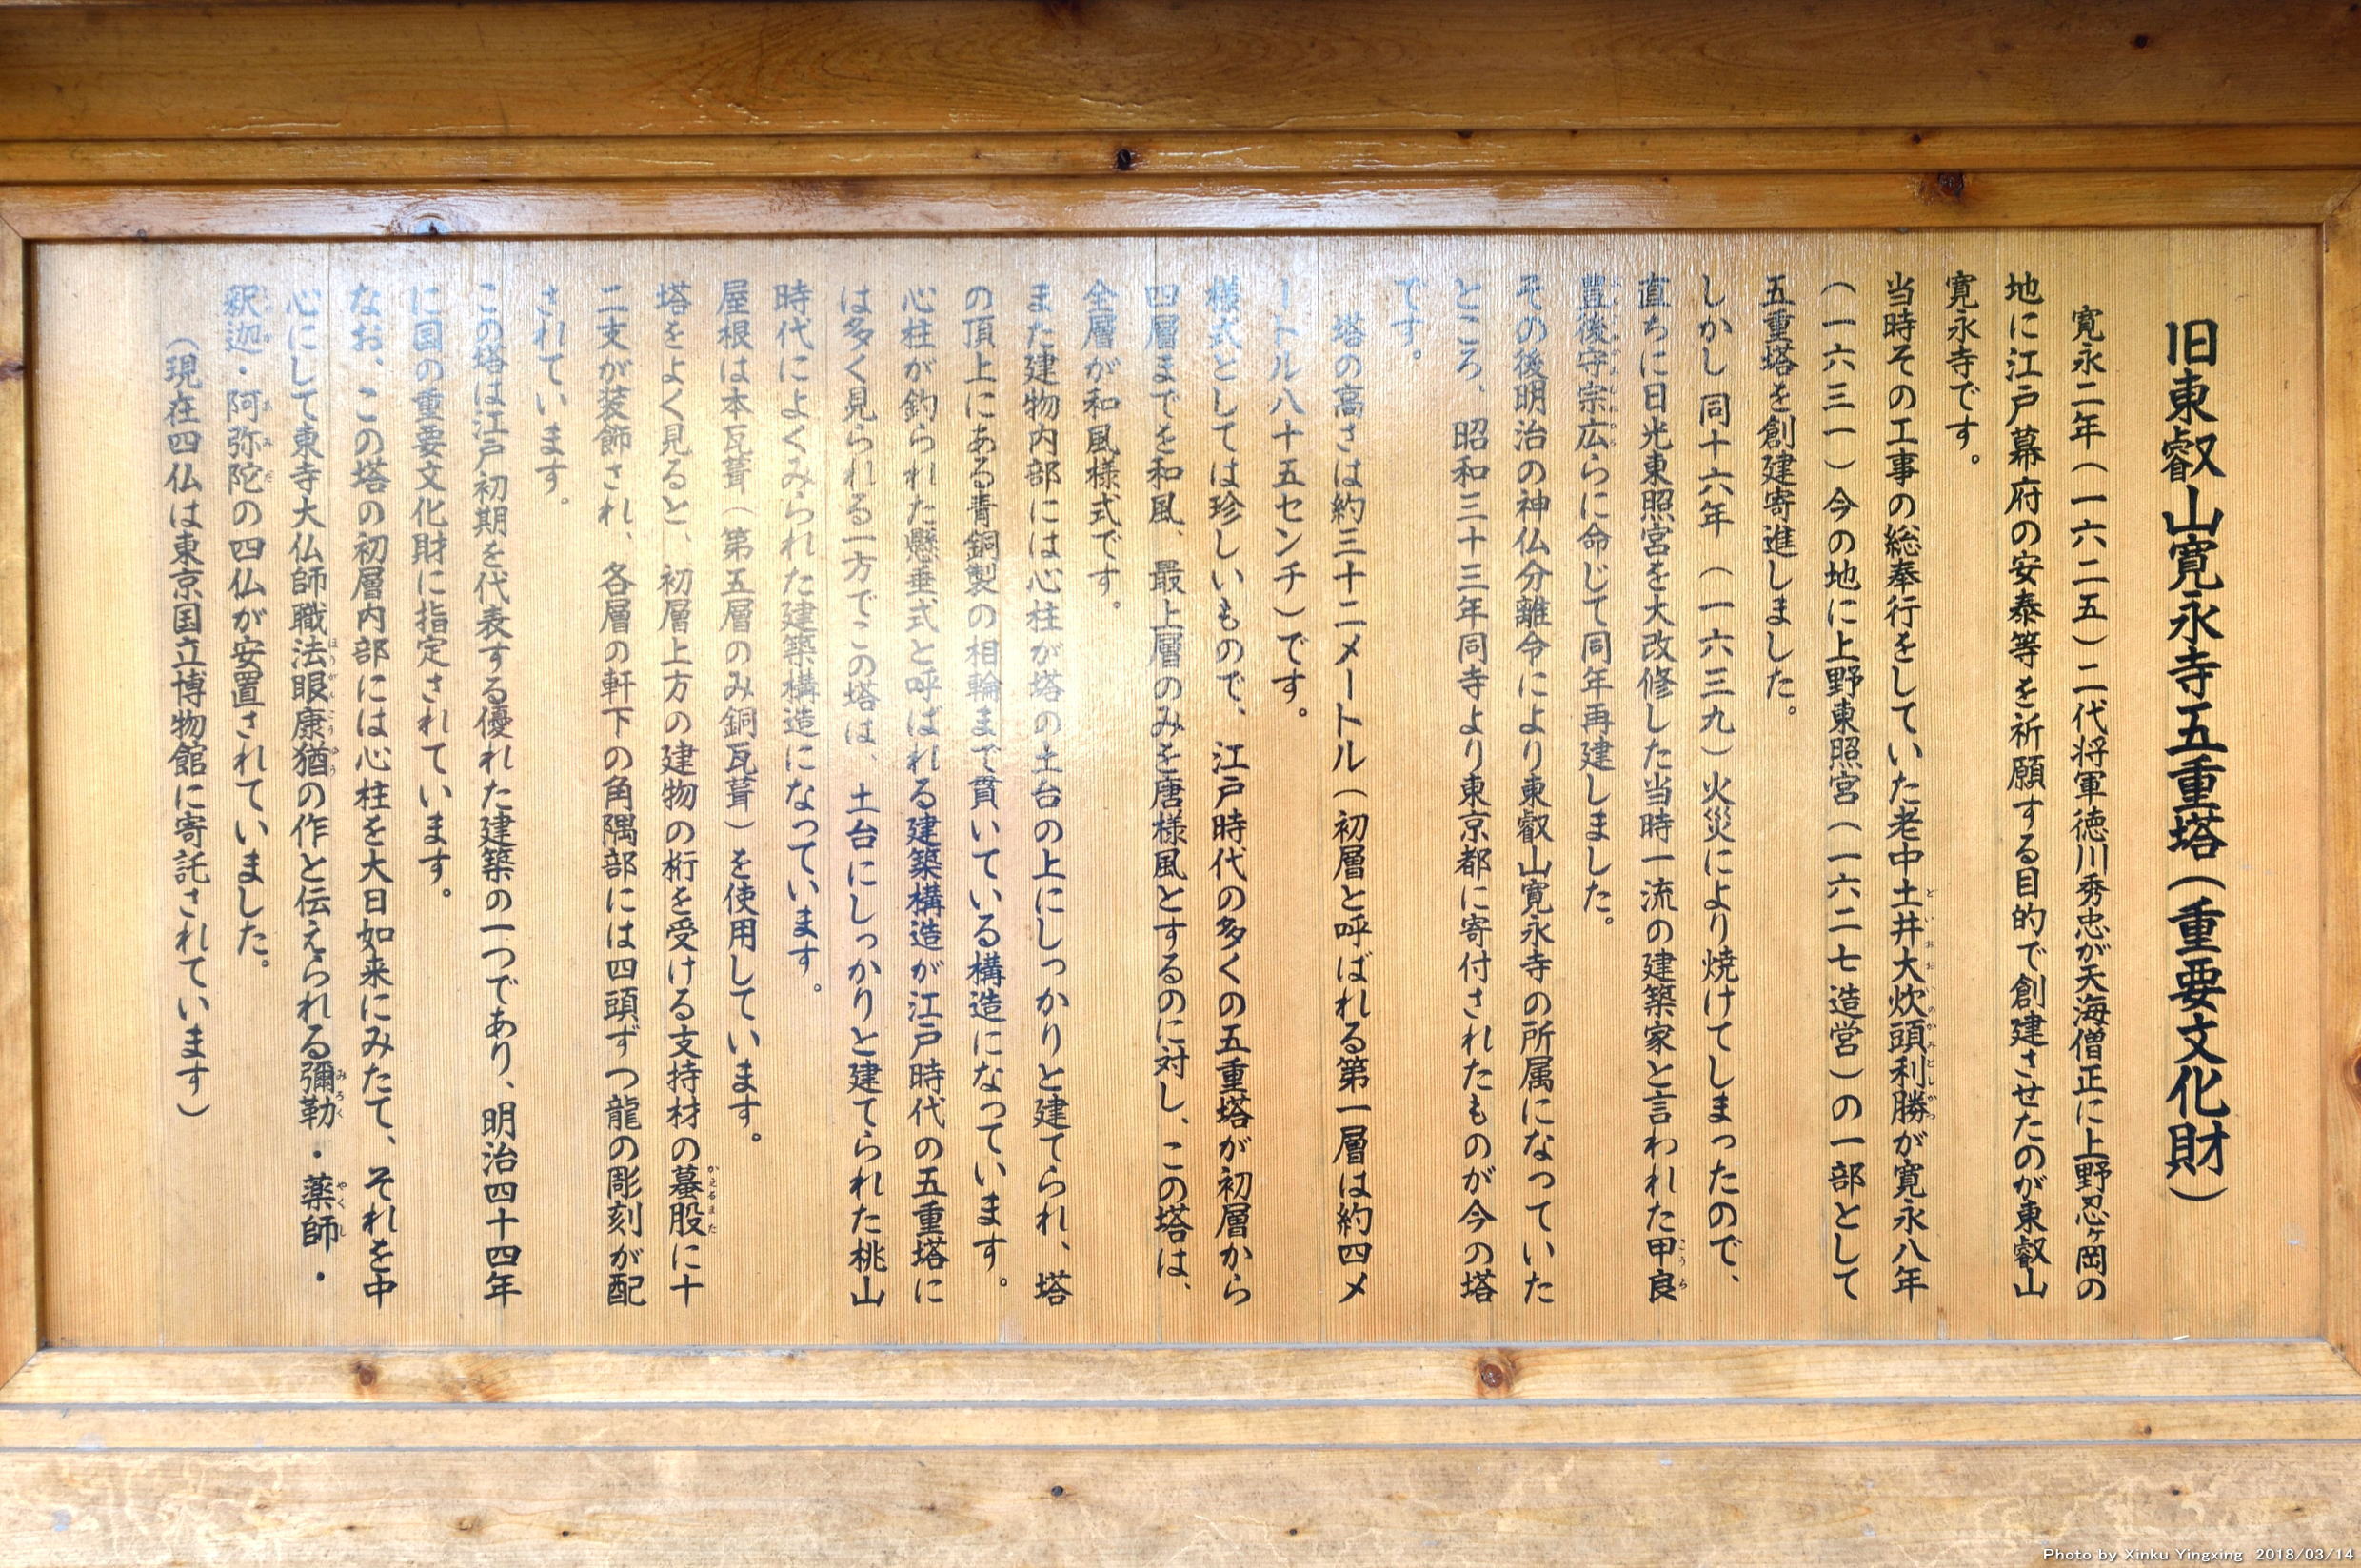 旧東叡山寛永寺五重塔(重要文化財)
寛永二年(一六二五)二代将軍徳川秀忠が天海僧正に上野忍ヶ岡の
地に江戸幕府の安泰等を祈願する目的で創建させたのが東叡山
寛永寺です。
当時その工事の総奉行をしていた老中土井大炊頭利勝が寛永八年
(一六三一)今の地に上野東照宮(一六二七造営)の一部として
五重塔を創建寄進しました。
しかし同十六年(一六三九)火災により焼けてしまったので、
直ちに日光東照宮を大改修した当時一流の建築家と言われた甲良
豊後守宗広らに命じて同年再建しました。
その後明治の神仏分離令により東叡山寛永寺の所属になっていた
ところ、昭和三十三年同寺より東京都に寄付されたものが今の塔
です。
塔の高さは約三十二メートル(初層と呼ばれる第一層は約四メ
ートル八十五センチ)です。
様式としては珍しいもので、江戸時代の多くの五重塔が初層から
四層までを和風、最上層のみを唐様風とするのに対し、この塔は、
全層が和風様式です。
また建物内部には心柱が塔の土台の上にしっかりと建てられ、塔
の頂上にある青銅製の相輪まで貫いている構造になっています。
心柱が釣られた懸垂式と呼ばれる建築構造が江戸時代の五重塔に
は多く見られる一方でこの塔は、土台にしっかりと建てられた桃山
時代によくみられた建築構造になっています。
屋根は本瓦葺(第五層のみ銅瓦葺)を使用しています。
塔をよく見ると、初層上方の建物の桁を受ける支持材の蟇股に十
二支が装飾され、各層の軒下の角隅部には四頭ずつ龍の彫刻が配
されています。
この塔は江戸初期を代表する優れた建築の一つであり、明治四十四年
に国の重要文化財に指定されています。
なお、この塔の初層内部には心柱を大日如来にみたて、それを中
心にして東寺大仏師職法眼康猶の作と伝えられる彌勒・薬師・
釈迦・阿弥陀の四仏が安置されていました。
(現在四仏は東京国立博物館に寄託されています)
Photo by Xinku Yingxing 2018/03/14